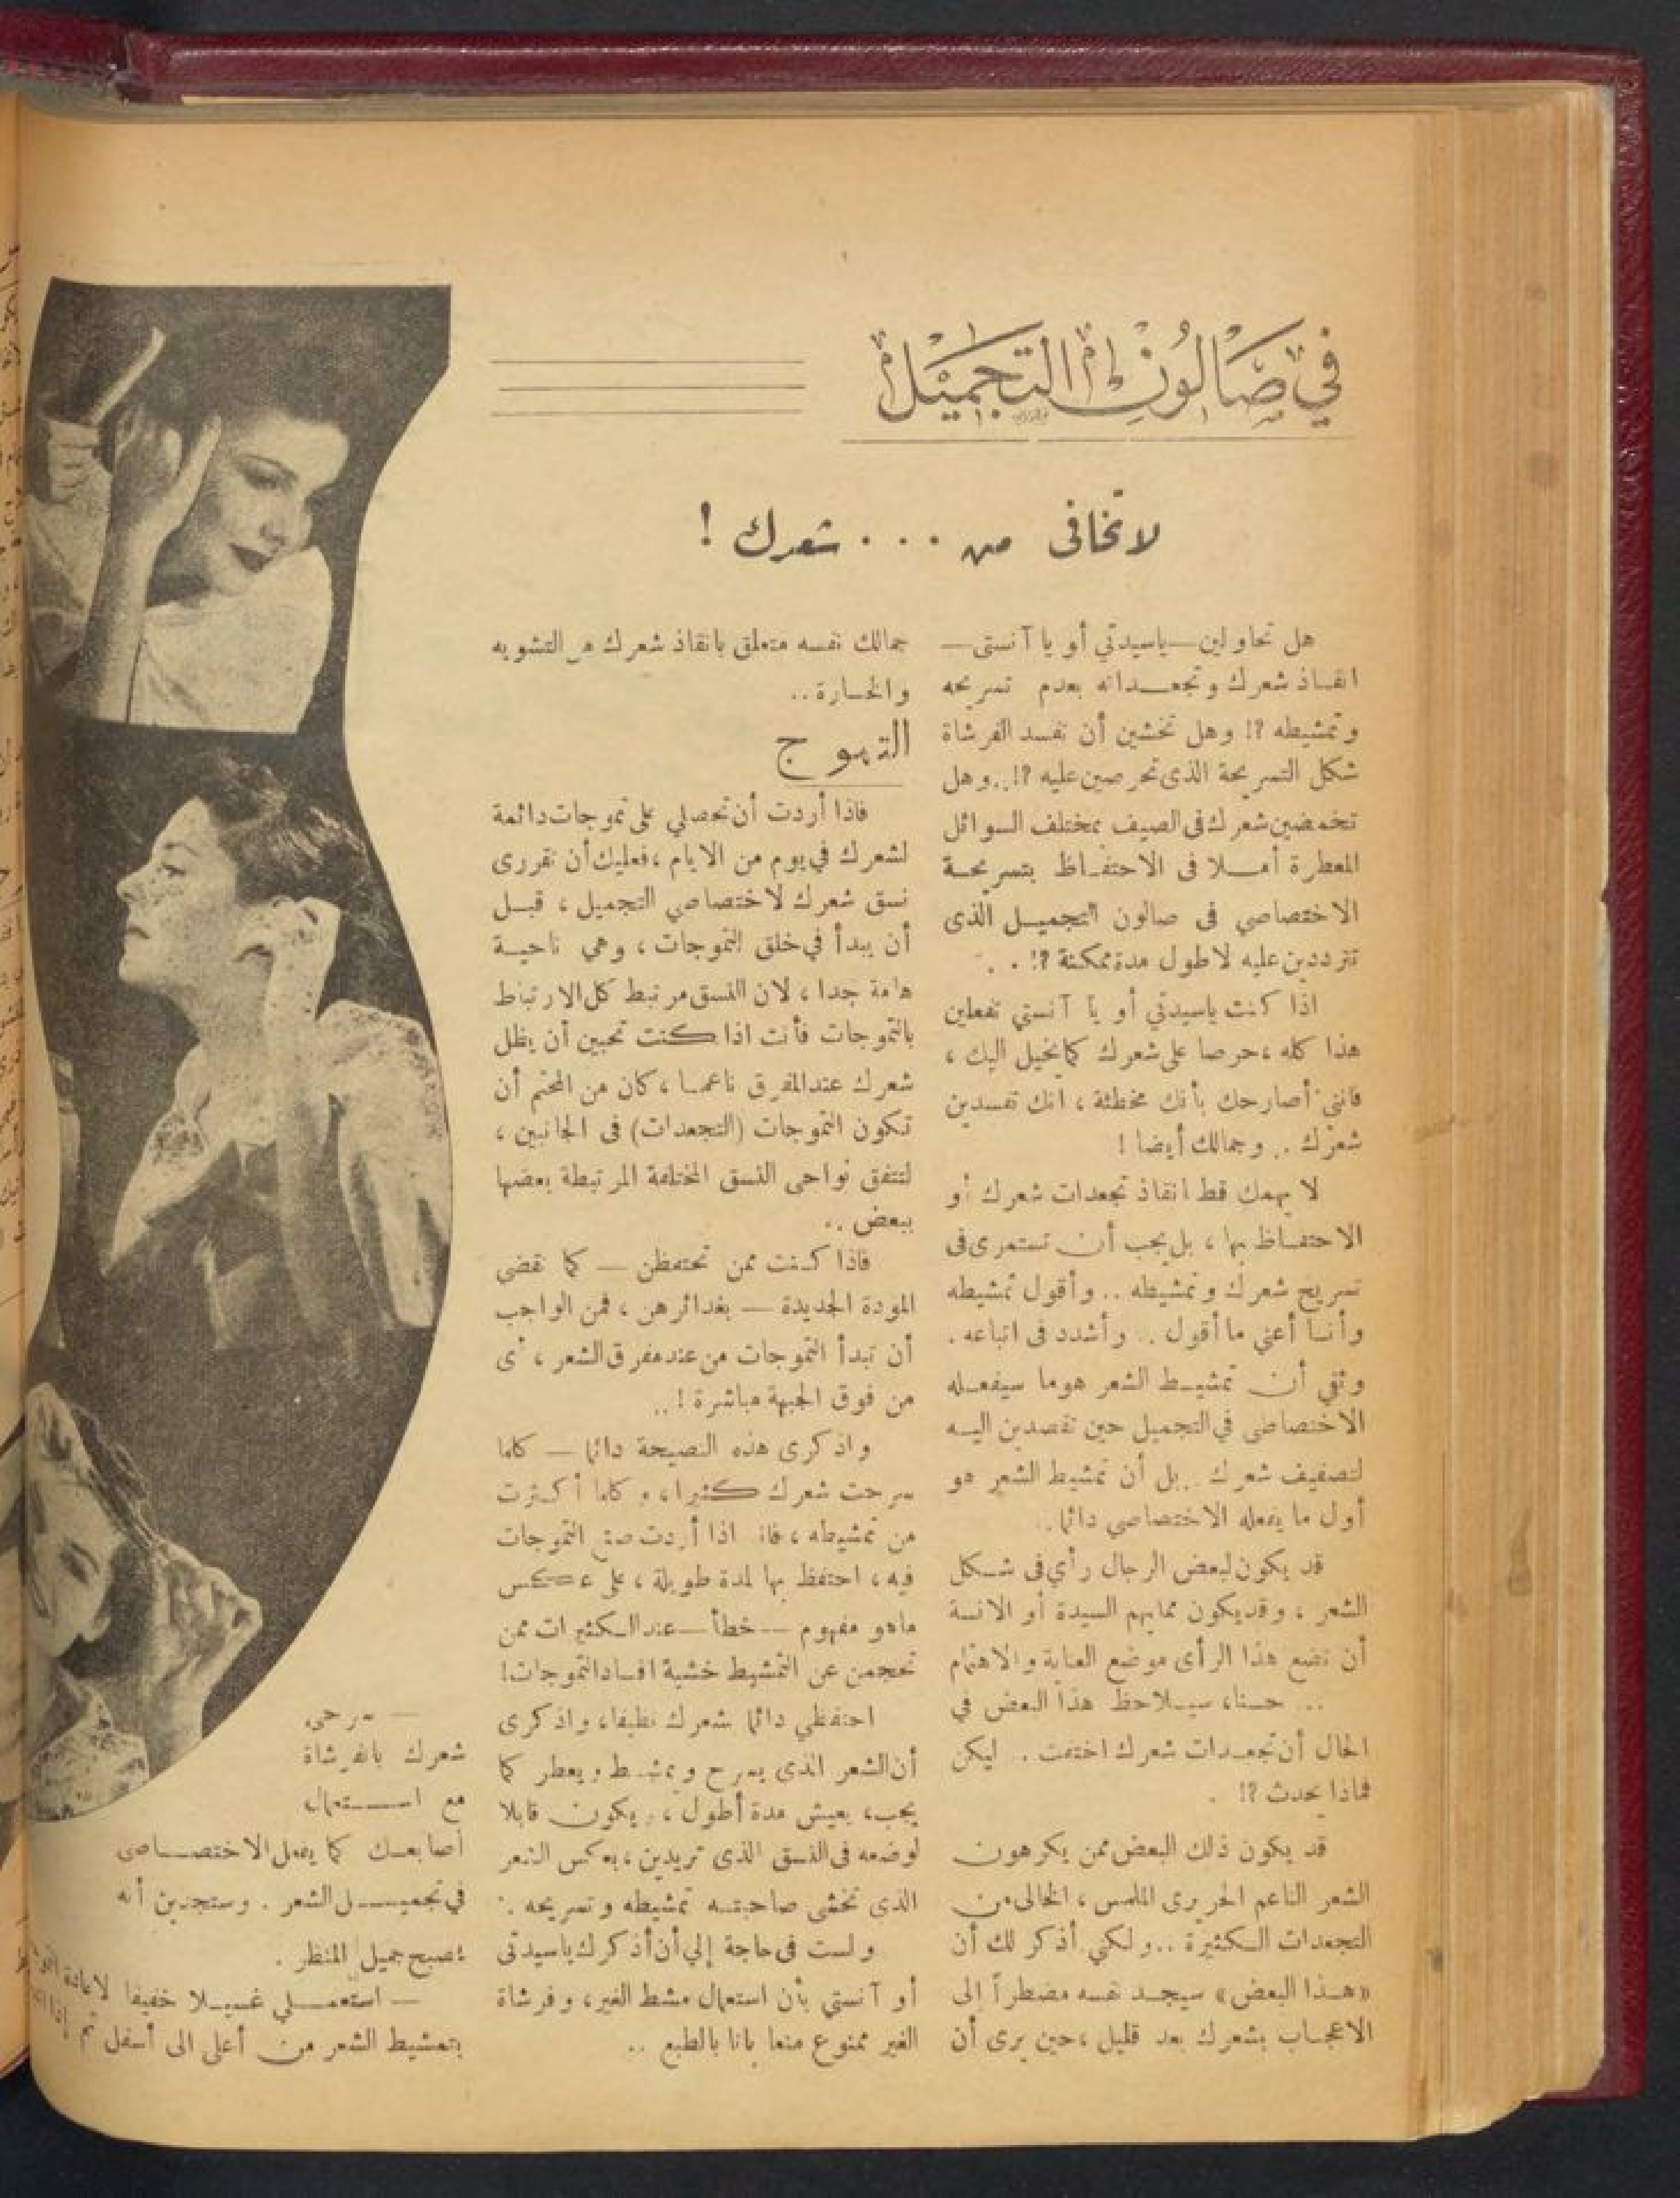 في صالون التجميل
لا تخافى من . . . شعرك !
هل تحاولين — ياسيدتي أو يا آنستى —
انقاذ شعرك وتجعداته بعدم تسريحه
وتمشيطه ?! وهل تخشين أن تفسد الفرشاة
شكل التسريحة الذى تحرصين عليه ?!.. وهل
تخمضين شعرك فى الصيف بمختلف السوائل
المعطرة أملا فى الاحتفاظ بتسريحة
الاختصاصي فى صالون التجميل الذى
تترددين عليه لاطول مدة ممكنة ?! . .
اذا كنت ياسيدتي أو يا آنستي تفعلين
هذا كله ، حرصا على شعرك كما يخيل اليك ،
فانني أصارحك بأنك مخطئة ، انك تفسدين
شعرك .. وجمالك أيضا !
لا يهمك قط انقاذ تجعدات شعرك أو
الاحتفاظ بها ، بل يجب أن تستمرى فى
تسريح شعرك وتمشيطه .. وأقول تمشيطه
وأنا أعني ما أقول .. وأشدد فى اتباعه .
وثقي أن تمشيط الشعر هو ما سيفعله
الاختصاصى في التجميل حين تقصدين اليه
لتصفيف شعرك .. بل أن تمشيط الشعر هو
أول ما يفعله الاختصاصي دائما ..
قد يكون لبعض الرجال رأي فى شكل
الشعر ، وقد يكون مما يهم السيدة أو الانسة
أن تضع هذا الرأى موضع العناية والاهتمام
.. حسنا، سيلاحظ هذا البعض في
الحال أن تجعدات شعرك اختفت .. ليكن
فماذا يحدث ?! .
قد يكون ذلك البعض ممن يكرهون
الشعر الناعم الحريرى الملمس ، الخالى من
التجعدات الكثيرة .. ولكني أذكر لك أن
«هذا البعض» سيجد نفسه مضطراً إلى
الاعجاب بشعرك بعد قليل ، حين يرى أن
جمالك نفسه متعلق بانقاذ شعرك من التشويه
والخسارة ..
التموج
فاذا أردت أن تحصلي على تموجات دائمة
لشعرك في يوم من الايام ، فعليك أن تقررى
نسق شعرك لاختصاصي التجميل ، قبل
أن يبدأ في خلق التموجات ، وهي ناحية
هامة جدا ، لان النسق مرتبط كل الارتباط
بالتموجات فأنت اذا كنت تحبين أن يظل
شعرك عند المفرق ناعما ، كان من المحتم أن
تكون التموجات (التجعدات) فى الجانبين ،
لتتفق نواحى النسق المختلفة المرتبطة بعضها
ببعض ..
فاذا كنت ممن تحتفظن — كما تقضى
المودة الجديدة — بغدائرهن ، فمن الواجب
أن تبدأ التموجات من عند مفرق الشعر ، أى
من فوق الجبهة مباشرة ! ..
واذكرى هذه النصيحة دائما — كلما
سرحت شعرك كثيرا ، وكلما أكثرت
من تمشيطه ، فانك اذا أردت صنع التموجات
فيه ، احتفظ بها لمدة طويلة ، على عكس
ماهو مفهوم — خطأ — عند الكثيرات ممن
تحجمن عن التمشيط خشية افساد التموجات !
احتفظي دائما شعرك نظيفا ، واذكرى
أن الشعر الذى يسرح ويمشط ويعطر كما
يجب ، يعيش مدة أطول ، ويكون قابلا
لوضعه فى النسق الذى تريدين ، بعكس الشعر
الذى تخشى صاحبته تمشيطه وتسريحه .
ولست فى حاجة إلي أن أذكرك ياسيدتى
أو آنستي بأن استعمال مشط الغير ، وفرشاة
الغير ممنوع منعا باتا بالطبع ..
— سرحى
شعرك بالفرشاة
مع استعمال
أصابعك كما يفعل الاختصاصى
في تجميل الشعر . وستجدين أنه
يصبح جميل المنظر .
— استعملي غسيلا خفيفا لاعادة
بتمشيط الشعر من أعلى الى أسفل ثم